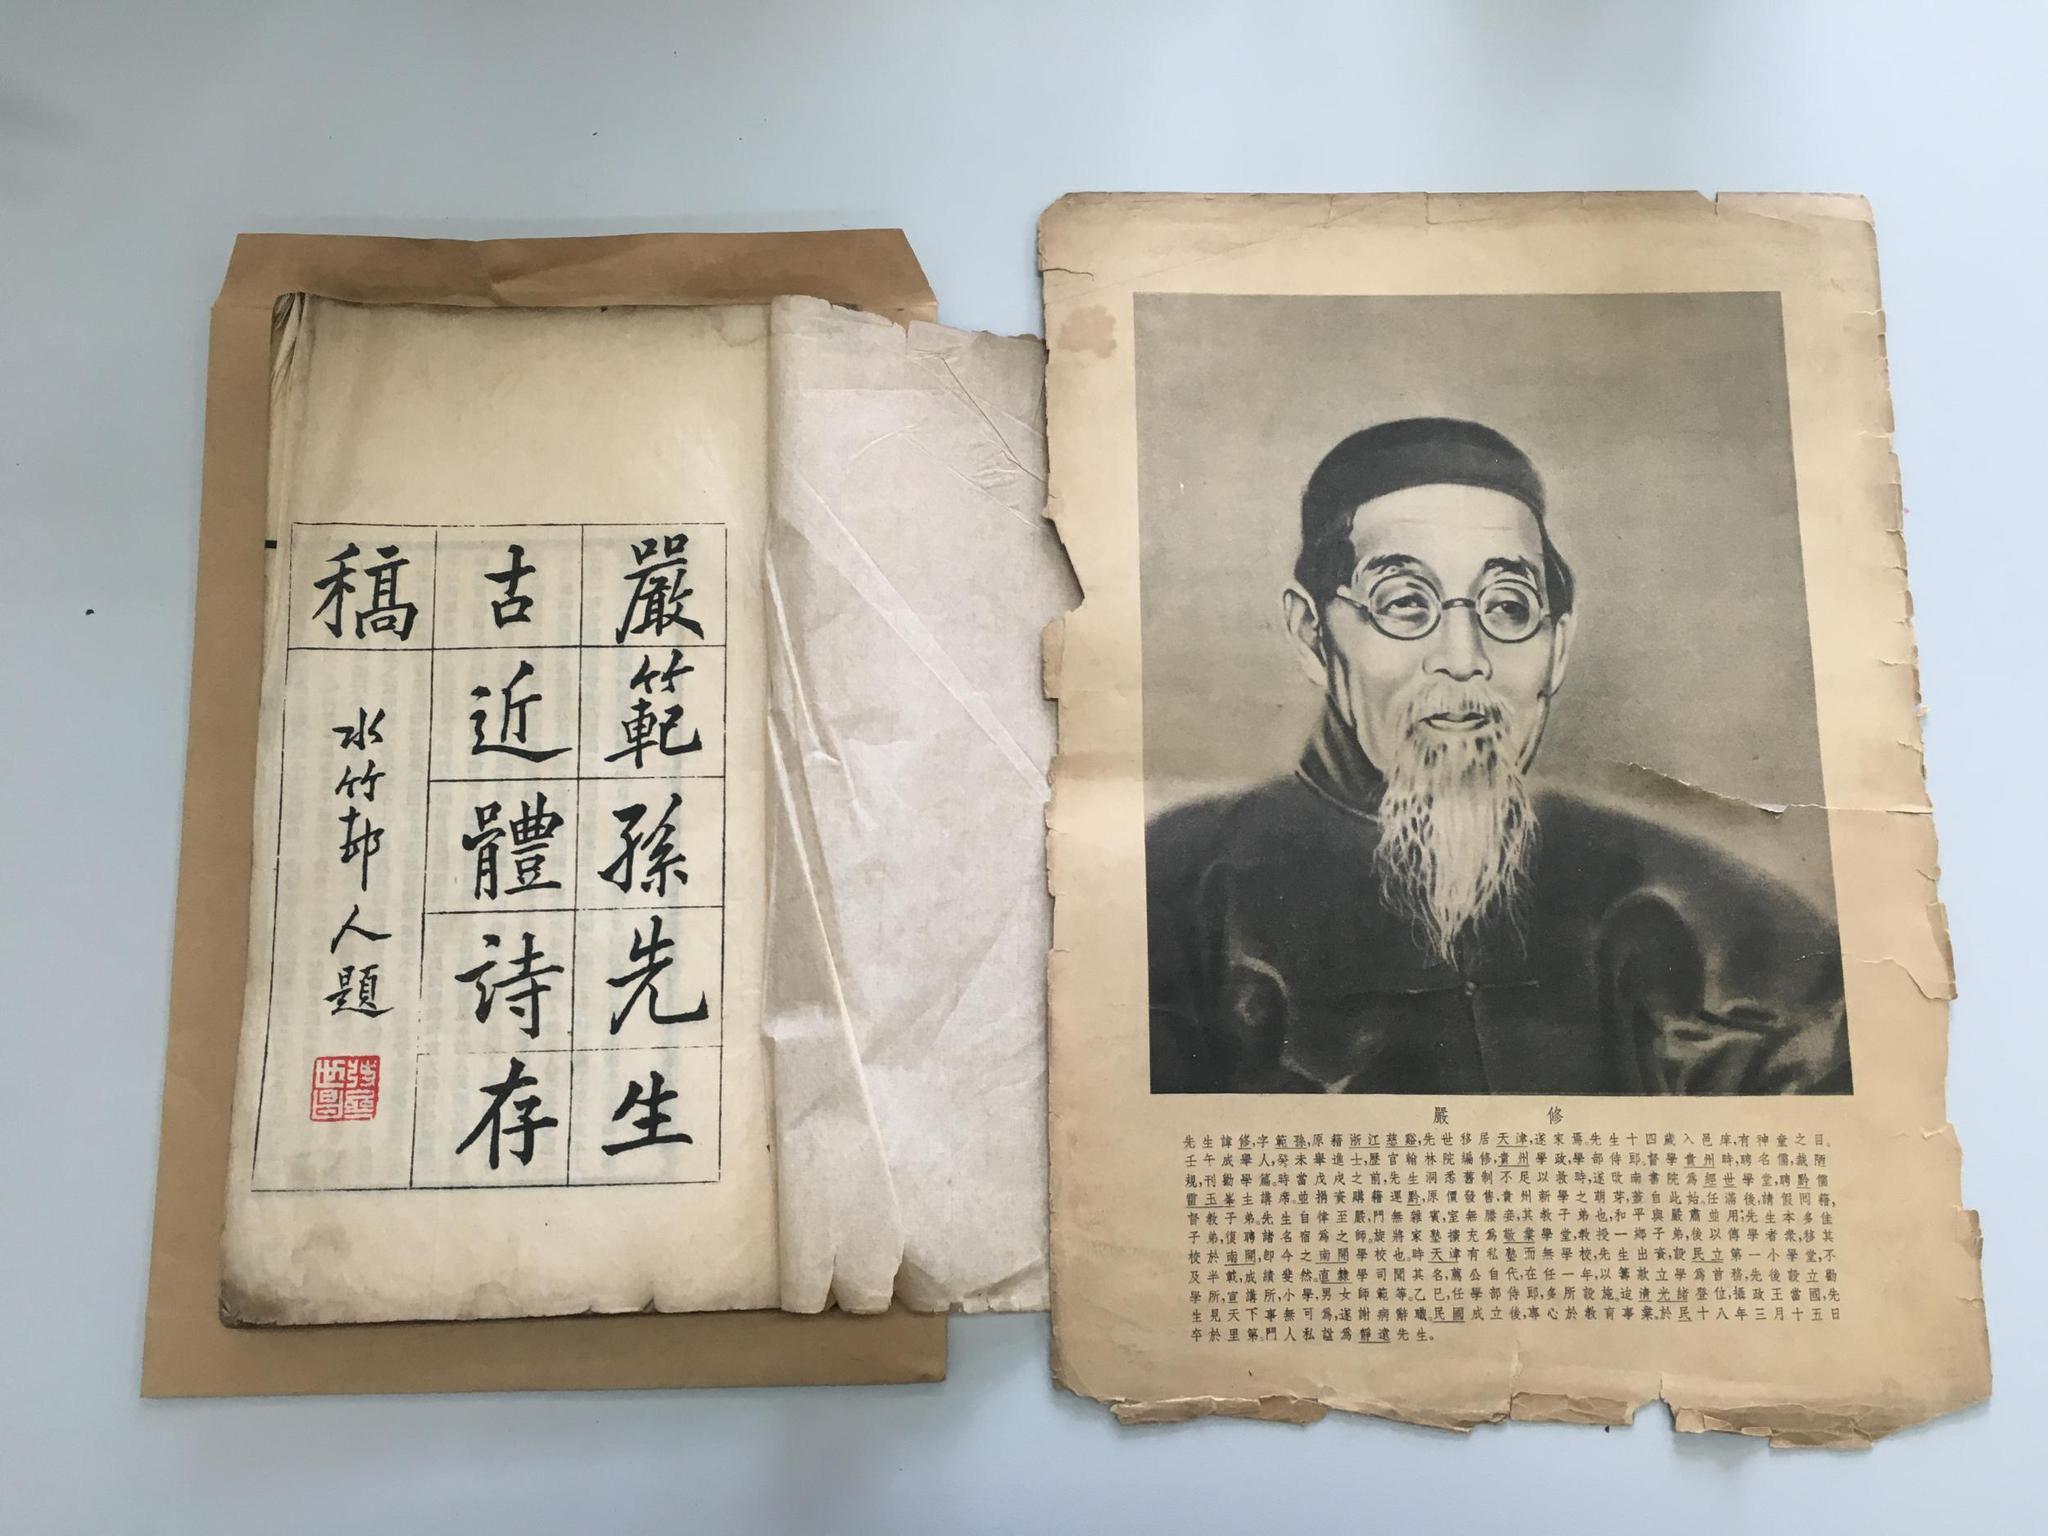 嚴範孫先生
古近體詩存
稿
水竹邨人題
嚴修
先生諱修,字範孫,原籍浙江慈谿,先世移居天津,遂家焉。先生十四歲入邑庠,有神童之目。
壬午成舉人,癸未舉進士,歷官翰林院編修,貴州學政,學部侍郎。督學貴州時,聘名儒,裁陋
規,刊勸學篇。時當戊戌之前,先生洞悉舊制不足以救時,遂改南書院為經世學堂,聘黔儒
雷玉峯主講席。並捐資購籍運黔,原價發售,貴州新學之萌芽,蓋自此始。任滿後,請假回籍,
督教子弟。先生自律至嚴,門無雜賓,室無媵妾,其教子弟也,和平與嚴肅並用;先生本多佳
子弟,復聘諸名宿為之師。旋將家塾擴充為敬業學堂,教授一鄉子弟,後以傳學者衆,移其
校於南開,即今之南開學校也。時天津有私塾而無學校,先生出資,設民立第一小學堂,不
及半載,成績斐然。直隸學司聞其名,薦公自代,在任一年,以籌款立學為首務,先後設立勸
學所,宣講所,小學,男女師範等。乙巳,任學部侍郎,多所設施。迨清光緒登位,攝政王當國,先
生見天下事無可為,遂謝病辭職。民國成立後,專心於教育事業。於民十八年三月十五日
卒於里第。門人私諡為靜遠先生。